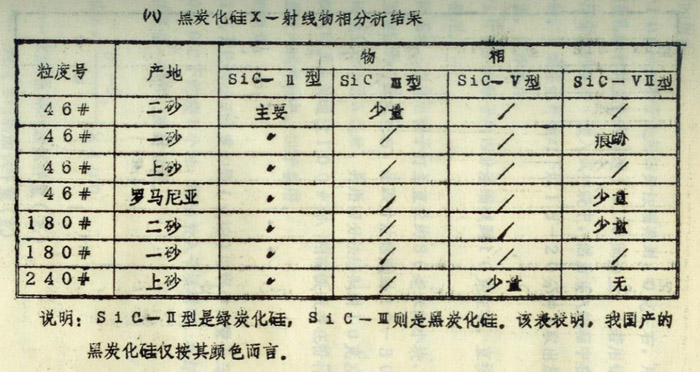 (八) 黑炭化硅X-射线物相分析结果
粒度号 产地 物 相
SiC-Ⅱ型 SiC Ⅲ型 SiC-V型 SiC-VⅡ型
46# 二砂 主要 少量 / /
46# 一砂 〃 / / 痕跡
46# 上砂 〃 / / /
46# 罗马尼亚 〃 / / 少量
180# 二砂 〃 / / 少量
180# 一砂 〃 / / /
240# 上砂 〃 / 少量 无
说明：SiC-Ⅱ型是绿炭化硅，SiC-Ⅲ则是黑炭化硅。该表表明，我国产的
黑炭化硅仅按其颜色而言。